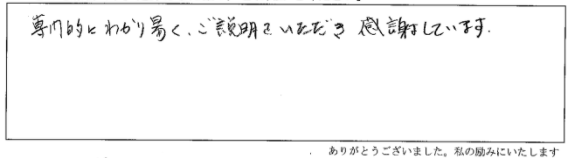 専門的にわかり易く、ご説明をいただき 感謝しています.
ありがとうございました。私の励みにいたします